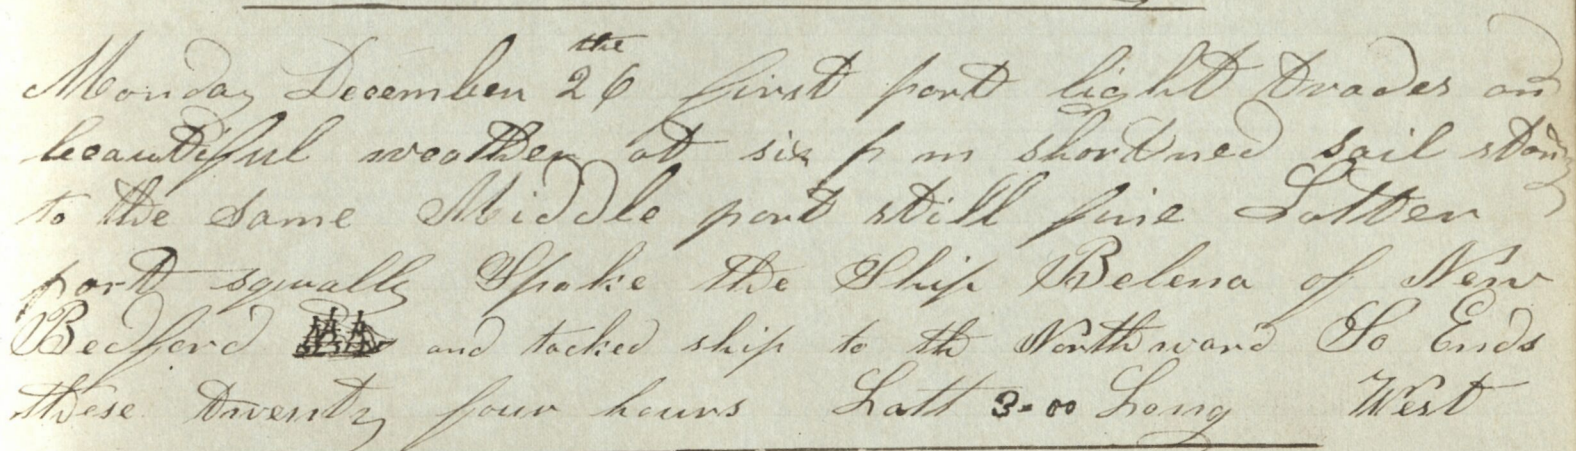 Monday December 26 the first part light trades an
beautiful weather at six p m shortned sail
to the same Middle part still fine Latter
part squally Spoke the Ship Belena of New
Bedford and tacked ship to th Northward So Ends
these twenty four hours Latt 3-00 Long West